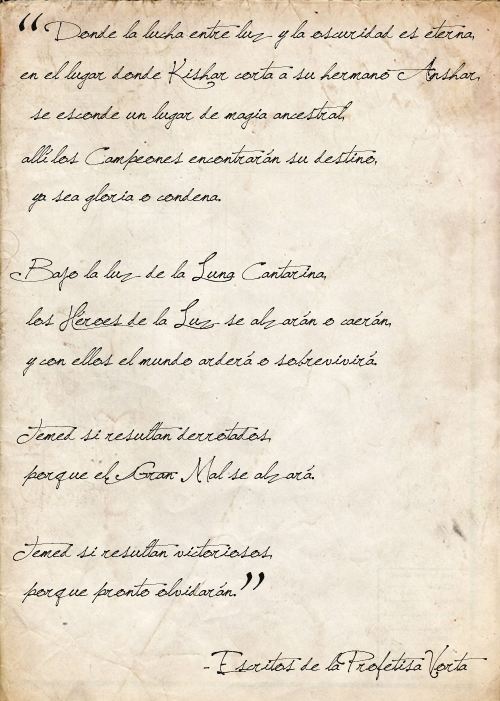 “Donde la lucha entre luz y la oscuridad es eterna,
en el lugar donde Kishar corta a su hermano Anshar,
se esconde un lugar de magia ancestral,
allí los Campeones encontrarán su destino,
ya sea gloria o condena.
Bajo la luz de la Luna Cantarina,
los Héroes de la Luz se alzarán o caerán,
y con ellos el mundo arderá o sobrevivirá.
Temed si resultan derrotados,
porque el Gran Mal se alzará.
Temed si resultan victoriosos,
porque pronto olvidarán.”
-Escritos de la Profetisa Vorta